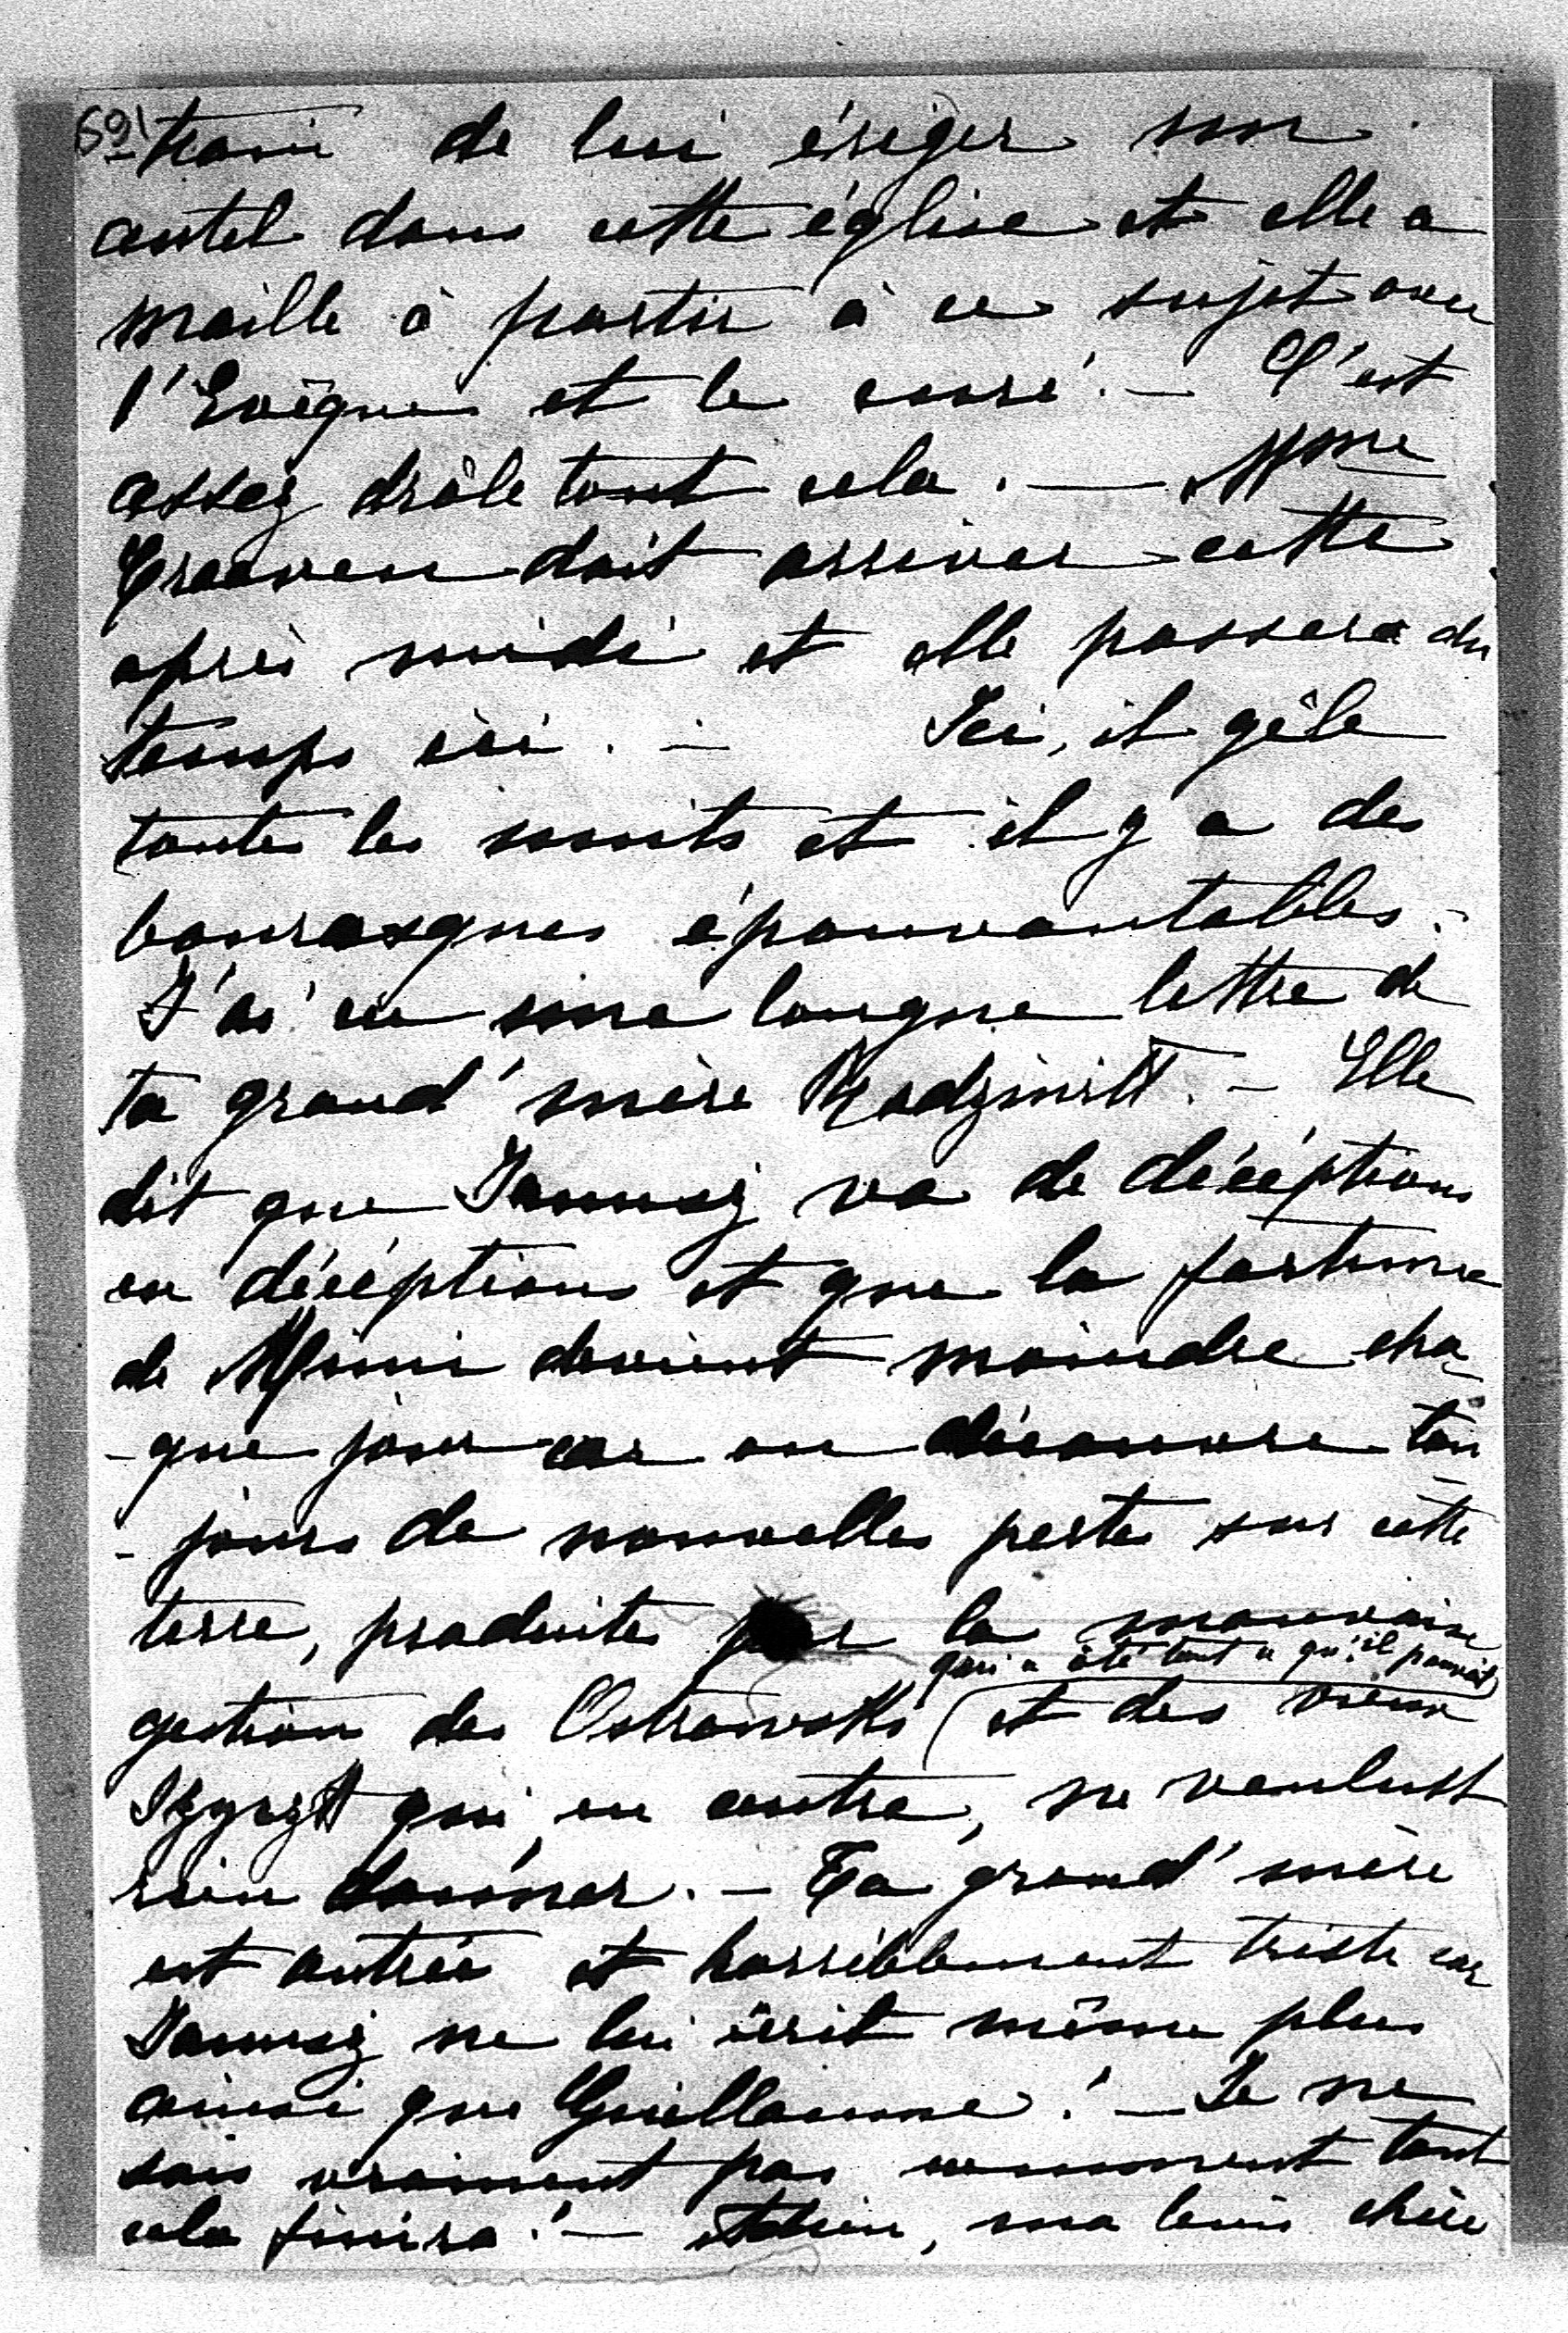 691
train de lui ériger son
autel dans cette église et elle a
maille à partir à ce sujet avec
l'Evêque et le curé. — C'est
assez drôle tout cela. — Mme
doit arriver cette
après midi et elle passera du
temps ici. — Ici, il gèle
toutes les nuits et il y a des
bourasques épouvantables. -
J'ai eu une longue lettre de
ta grand'mère. — Elle
dit que Janusz va de décéptions
en décéptions et que la fortune
de Mimi devient moindre cha-
-que jour car on découvre tou
-jours de nouvelles pertes sur cette
terre, produites par la mauvaise
qui a ôté tout ce qu'il pouvait
gestion des Ostrowski (et des vieux
qui, en outre, ne veulent
rien donner. — Ta grand'mère
est outrée et horriblement triste car
Janusz ne lui écrit même plus
ainsi que Guillaume! — Je ne
sais vraiment pas comment tout
cela finira! — Adieu, ma bien chère